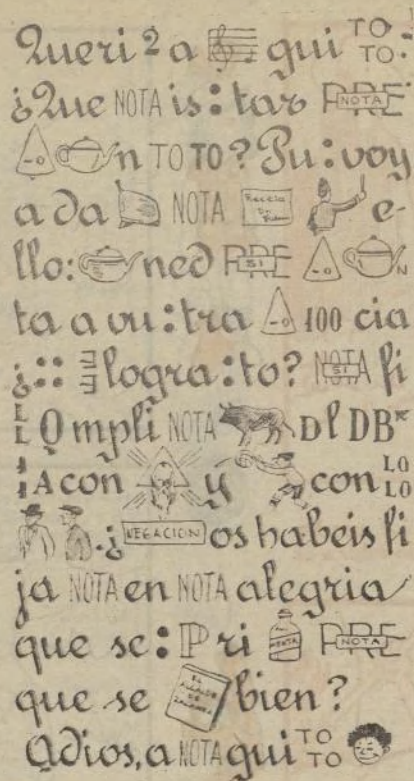 Queri 2 a gui TO TO:
¿Que NOTA is : tar PRE NOTA
n TO TO? Pu : voy
a da NOTA Receta De e-
llo: ned PRE SI N
ta a vu : tra 100 cia
¿ : : E logra : to? NOTA SI fi
L L O mpli NOTA D l DB
A con y con LO LO
. ¿ NEGACION os habeis fi
ja NOTA en NOTA alegria
que se : P ri MENTA PRE NOTA
que se EL ALCALDE DE ZALAMEA bien?
Adios, a NOTA gui TO TO